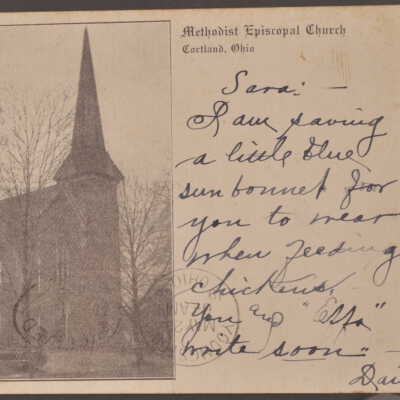 Methodist Episcopal Church
Cortland, Ohio
Sara:-
I am saving
a little blue
sun bonnet for
you to wear
when feeding
chickens.
You and "Etta"
write soon -